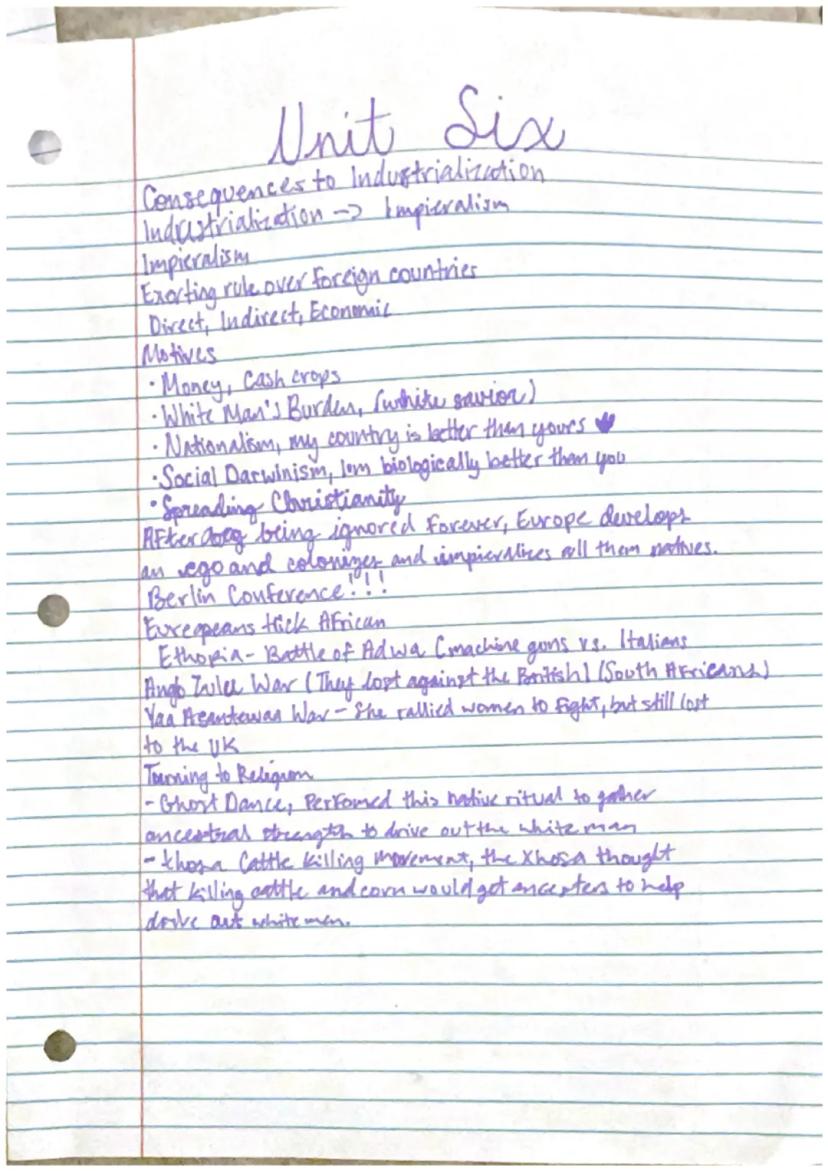 Unit Six
Consequences to Industrialization
Industrialization -> Impieralism
Impieralism
Exerting rule over foreign countries
Direct, Indirect, Economic
Motives
• Money, Cash crops
• White Man's Burden, (white savior)
• Nationalism, my country is better than yours
• Social Darwinism, Iom biologically better than you
• Spreading Christianity
After being ignored forever, Europe develops
an ego and colonizes and impieralizes all them natives.
Berlin Conference!!!
Europeans African
Ethopia - Battle of Adwa (machine guns vs. Italians
Anglo Zulu War (They lost against the British) (South Africans)
Yaa Asantewaa War - She rallied women to fight, but still lost
to the UK
Turning to Religion
- Ghost Dance, Perfomed this native ritual to gather
ancestral strength to drive out the white man
- Xhosa Cattle Killing movement, the Xhosa thought
that killing cattle and corn would get ancesters to help
drive out white men.